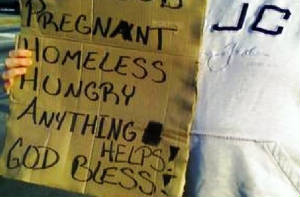 PREGNANT
HOMELESS
HUNGRY
ANYTHING
HELPS!
GOD BLESS!
JC